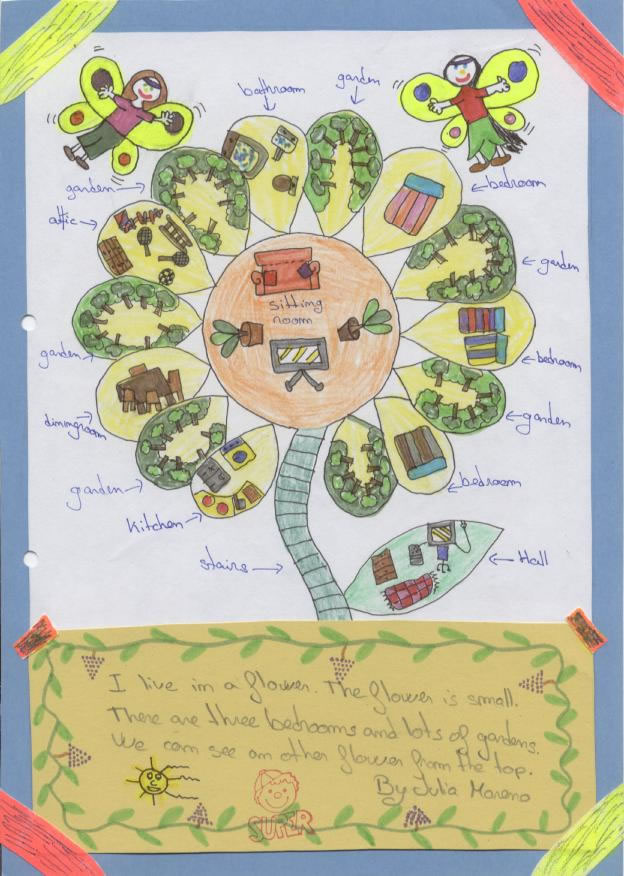 bathroom
garden
garden
bedroom
attic
garden
sitting
room
garden
bedroom
diningroom
garden
garden
bedroom
Kitchen
stairs
Hall
I live in a flower. The flower is small.
There are three bedrooms and lots of gardens.
We can see an other flower from the top.
By Julia Moreno
SUPER